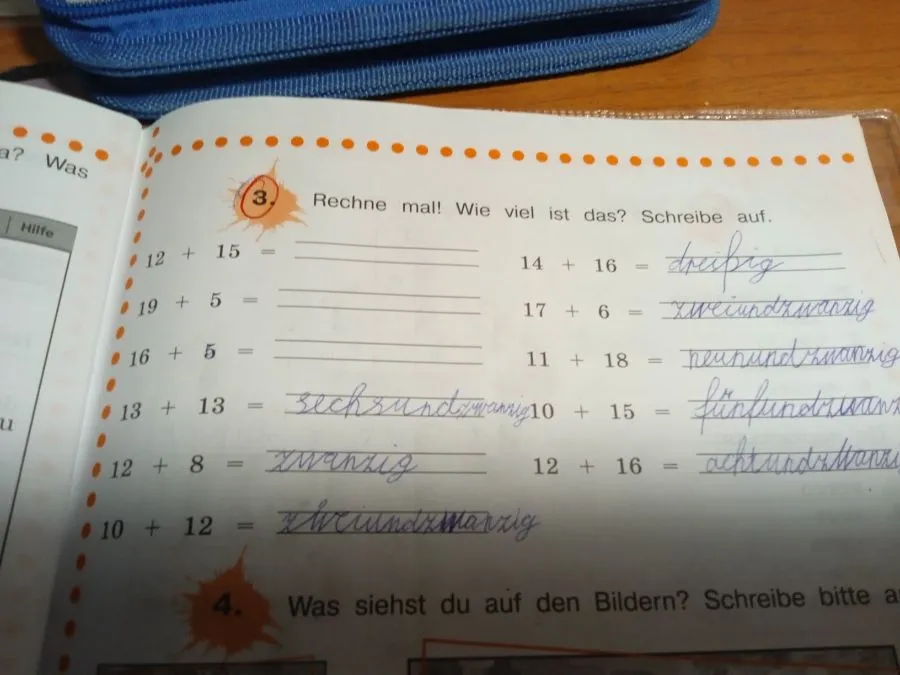 a? Was
Hilfe
u
3. Rechne mal! Wie viel ist das? Schreibe auf.
12 + 15 =
19 + 5 =
16 + 5 =
13 + 13 = sechsundzwanzig
12 + 8 = zwanzig
10 + 12 = zweiundzwanzig
14 + 16 = dreißig
17 + 6 = zweiundzwanzig
11 + 18 = neunundzwanzig
10 + 15 = fünfundzwanz
12 + 16 = achtundzwanzi
4. Was siehst du auf den Bildern? Schreibe bitte a